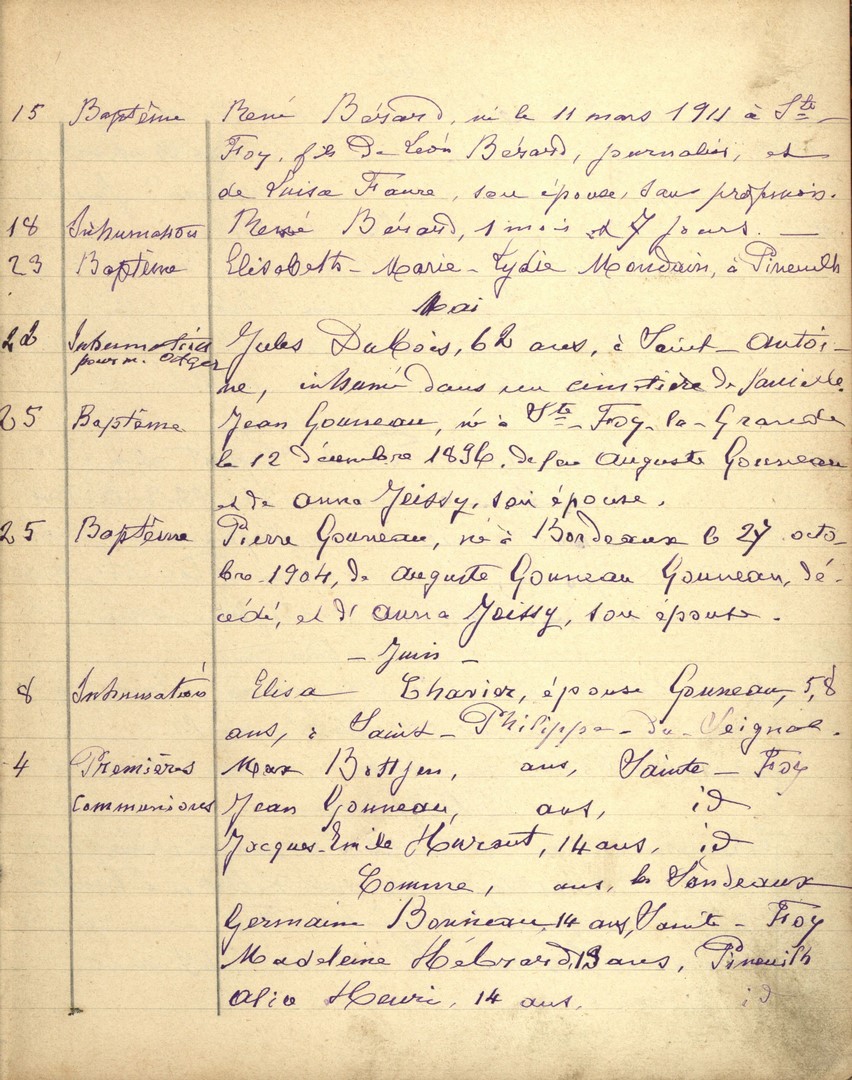 15 Baptême René Bérard, né le 11 mars 1911 à Ste-
Foy, fils de Léon Bérard, journalier, et
de Luisa Faure, son épouse, sans profession.
18 Inhumation René Bérard, 1 mois et 7 jours. —
23 Baptême Elisabeth-Marie-Lydie Mondain, à Pineuilh
Mai
22 Inhumation Jules Dubois, 62 ans, à Saint-Antoi-
pour m. Oger
ne, inhumé dans un cimetière de famille.
25 Baptême Jean Gouneau, né à Ste-Foy-la-Grande
le 12 décembre 1896, de feu Auguste Gouneau
et de Anna Joissy, son épouse.
25 Baptême Pierre Gouneau, né à Bordeaux le 27 octo-
bre 1904, de Auguste Gouneau Gouneau, dé-
cédé, et d'Anna Joissy, son épouse.
- Juin -
8 Inhumation Elisa Charier, épouse Gouneau, 58
ans, à Saint-Philippe-du-Seignal.
4 Premières Max Bottjen, ans, Sainte-Foy
Communions Jean Gouneau, ans, id
Jacques-Emile Huraut, 14 ans, id
Comme, ans, les
Germaine Bonneau, 14 ans, Sainte-Foy
Madeleine Hébrard, 13 ans, Pineuilh
Alice Henri, 14 ans, id